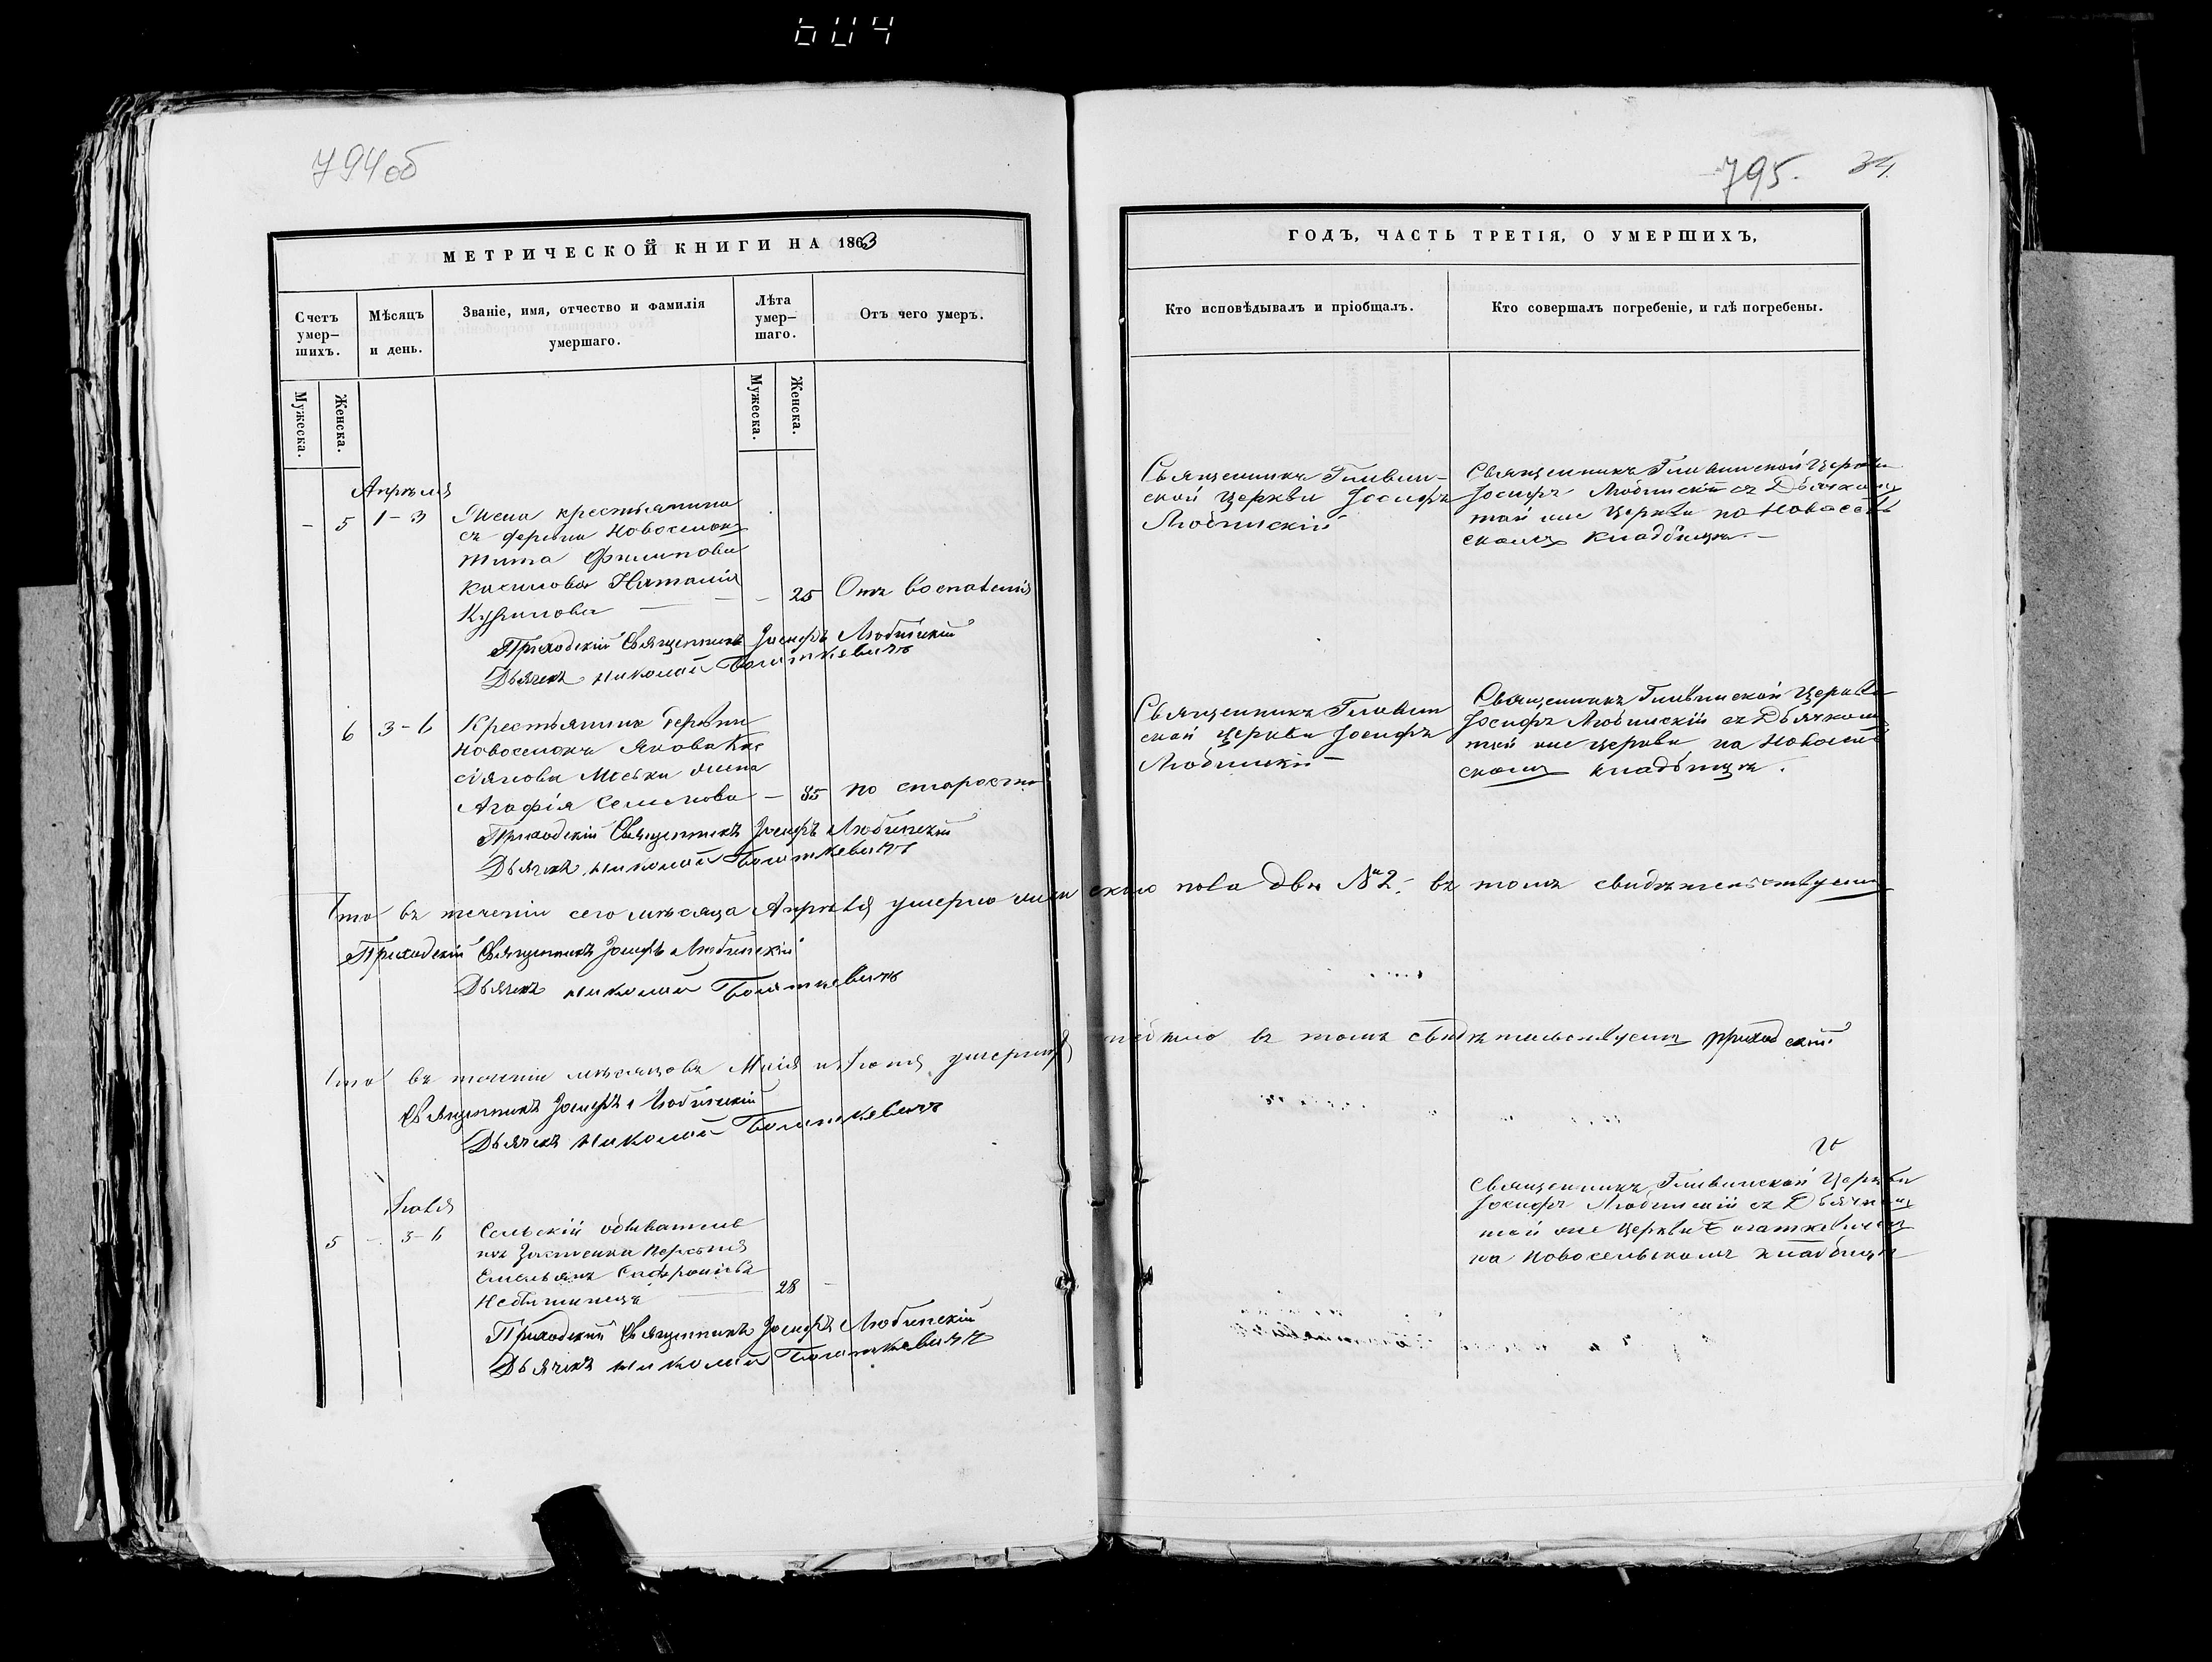 604
794об
795.
34
МЕТРИЧЕСКОЙ КНИГИ НА 1863
ГОДЪ, ЧАСТЬ ТРЕТІЯ, О УМЕРШИХЪ,
Счетъ умер-
шихъ.
Мѣсяцъ
и день.
Званіе, имя, отчество и фамилія
умершаго.
Лѣта
умер-
шаго.
Отъ чего умеръ.
Кто исповѣдывалъ и пріобщалъ.
Кто совершалъ погребеніе, и гдѣ погребены.
Мужеска.
Женска.
Мужеска.
Женска.
Апрѣля
- 5 1-3 Жена крестьянина
съ деревни Новоселок
Тита Филипова
Наталія
- 25 Отъ воспаленія
Приходскій Священникъ Іосифъ Любинскій
Дьячекъ Николай Болтткевичъ
Священникъ Гливин-
ской Церкви Іосифъ
Любинскій
Священникъ Гливинской Церкви
Іосифъ Любинскій съ Дьячкомъ
той же Церкви на Новосель
скомъ кладбищѣ.-
6 3-6 Крестьянина деревни
Новоселокъ Якова Кас
сіянова жена
Агафія Семенова - 85 по старости
Приходскій Священникъ Іосифъ Любинскій
Дьячекъ Николай
Священникъ Гливин
ской Церкви Іосифъ
Любинскій -
Священникъ Гливинской Церкви
Іосифъ Любинскій съ Дьячкомъ
той же церкви на Новосель
скомъ кладбищѣ.
Что въ теченіи сего мѣсяца Апрѣля умерло женскаго пола двѣ № 2. въ томъ свидѣтельствуемъ
Приходскій Священникъ Іосифъ Любинскій
Дьячекъ Николай
Что въ теченіи мѣсяцовъ Маія и Іюня умершихъ небыло въ томъ свидѣтельствуемъ Приходскій
Священникъ Іосифъ Любинскій
Дьячекъ Николай
Іюля
5 - 3-6 Сельскій обыватель
Емельянъ
28 -
Приходскій Священникъ Іосифъ Любинскій
Дьячекъ Николай
Священникъ Гливинской Церкви
Іосифъ Любинскій съ Дьячкомъ
той же Церкви
на Новосельскомъ кладбищѣ